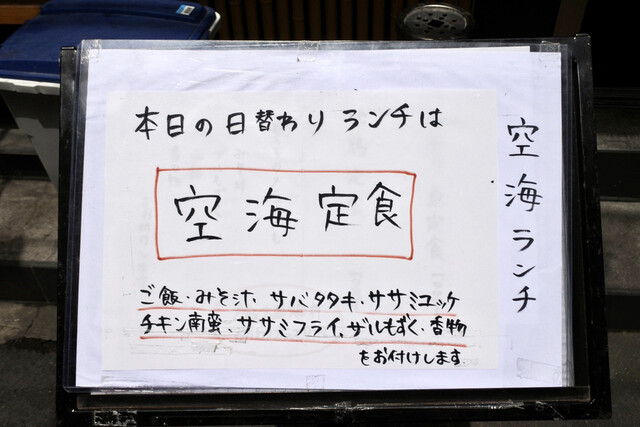 本日の日替わりランチは
空海定食
ご飯・みそ汁、サバタタキ・ササミユッケ
チキン南蛮、ササミフライ、ザルもずく・香物
をお付けします
空海ランチ